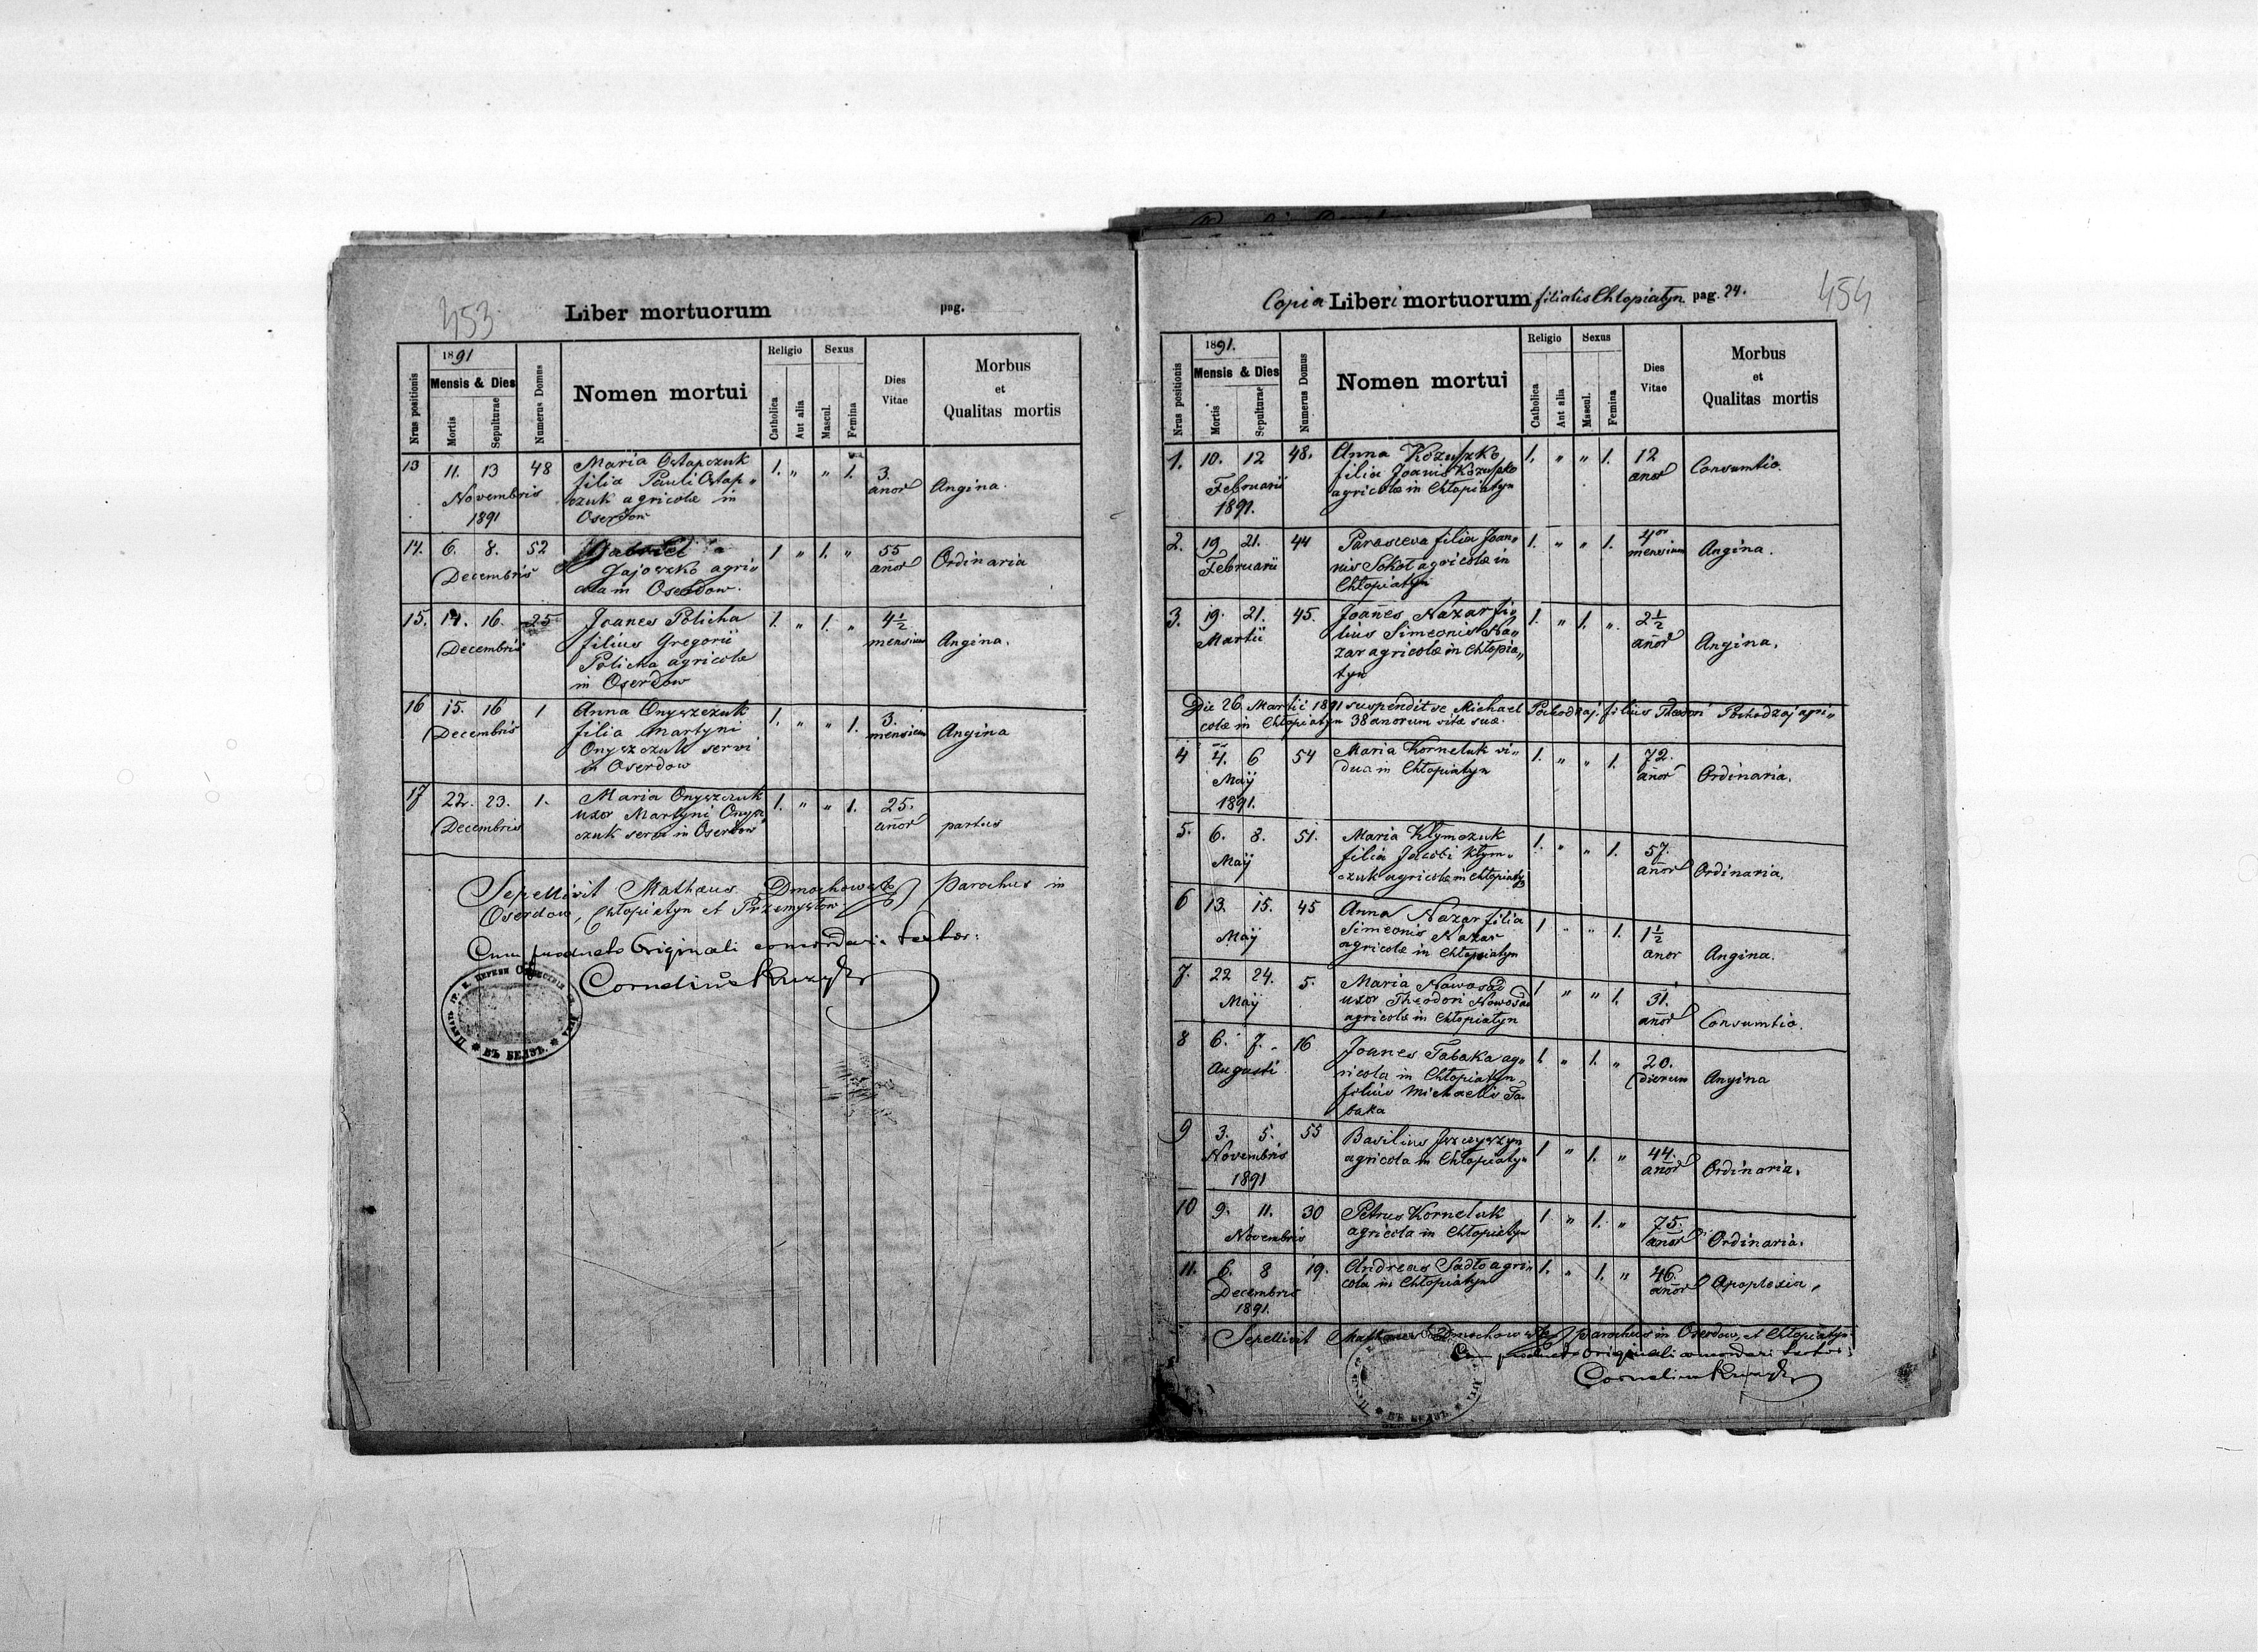 453
Liber mortuorum pag.
Nrus positionis
1891
Mensis & Dies
Mortis
Sepulturae
Numerus Domus
Nomen mortui
Religio
Catholica
Aut alia
Sexus
Mascul.
Femina
Dies
Vitae
Morbus
et
Qualitas mortis
13 11. 13 48 Maria Ostapczuk 1. „ „ 1. 3.
filia Pauli Ostap„ anor Angina.
Novembris czuk agricolæ in
1891 Oserdow
14. 6. 8. 52 Gabriel 1 „ 1. „ 55
Decembris Jajoszko agri„ anor Ordinaria
cola in Oserdow.
15. 14. 16. 25 Joanes Policha 1. „ 1. „ 4½
Decembris filius Gregorii mensium Angina.
Policha agricolæ
in Oserdow
16 15. 16 1 Anna Onyszczuk 1. „ „ 1. 3.
Decembris filia Martyni mensium Angina
Onyszczuk servi
in Oserdow
17 22. 23. 1. Maria Onyszczuk 1. „ „ 1. 25.
Decembris uxor Martyni Onysz„ anor partus
czuk servi in Oserdow
Sepellivit Mathaus Dmochowski parochus in
Oserdow, Chłopiatyn et Przemysłow
Cum producto Originali concordari testor:
Cornelius
ВЪ БЕЛЗѢ.
454
Copia Liberi mortuorum filialis Chłopiatyn pag. 24.
Nrus positionis
1891.
Mensis & Dies
Mortis
Sepulturae
Numerus Domus
Nomen mortui
Religio
Catholica
Aut alia
Sexus
Mascul.
Femina
Dies
Vitae
Morbus
et
Qualitas mortis
1. 10. 12 48. Anna Kozuszko 1. „ „ 1. 12
Februarii filia Joanis Kozuszko anor Consumtio.
1891. agricolæ in Chłopiatyn
2. 19 21. 44 Parasceva filia Joan„ 1. „ „ 1. 4or
Februarii nis Sokoł agricolæ in mensium Angina.
Chłopiatyn
3. 19. 21. 45. Joanes Nazar fi„ 1. „ 1. „ 2½
Martii lius Simeonis Na„ anor Angina.
zar agricolæ in Chłopia„
tyn
Die 26 Martii 1891 suspendit se Michael Pochodzaj filius Theodori Pochodzaj agri„
colæ in Chłopiatyn 38 anorum vitæ suæ.
4 4. 6 54 Maria Korneluk vi„ 1. „ „ 1. 72.
Maÿ dua in Chłopiatyn anor Ordinaria.
1891.
5. 6. 8. 51. Maria Kłymczuk 1. „ „ 1. 57.
Maÿ filia Jacobi Kłym„ anor Ordinaria.
czuk agricolæ in Chłopiatyn
6 13. 15. 45 Anna Nazar filia 1 „ „ 1. 1½
Maÿ Simeonis Nazar anor Angina.
agricolæ in Chłopiatyn
7. 22 24. 5. Maria Nowosad 1 „ „ 1. 31.
Maÿ uxor Theodori Nowosad anor Consumtio.
agricolæ in Chłopiatyn
8 6. 7. 16 Joanes Tabaka ag„ 1 „ 1. „ 20.
Augusti ricola in Chłopiatyn dierum Angina
filius Michaelis Ta„
baka
9 3. 5. 55 Basilius 1 „ 1. „ 44.
Novembris agricola in Chłopiatyn anor Ordinaria.
1891
10 9. 11. 30 Petrus Korneluk 1 „ 1. „ 75.
Novembris agricola in Chłopiatyn anor Ordinaria.
11. 6. 8 19. Andreas Sadło agri„ 1. „ 1. „ 46.
Decembris cola in Chłopiatyn anor Apoplexia,
1891.
Sepellivit Mathaus Dmochowski parochus in Oserdow, et Chłopiatyn
Cum producto originali concordari testor:
Cornelius
ВЪ БЕЛЗѢ.